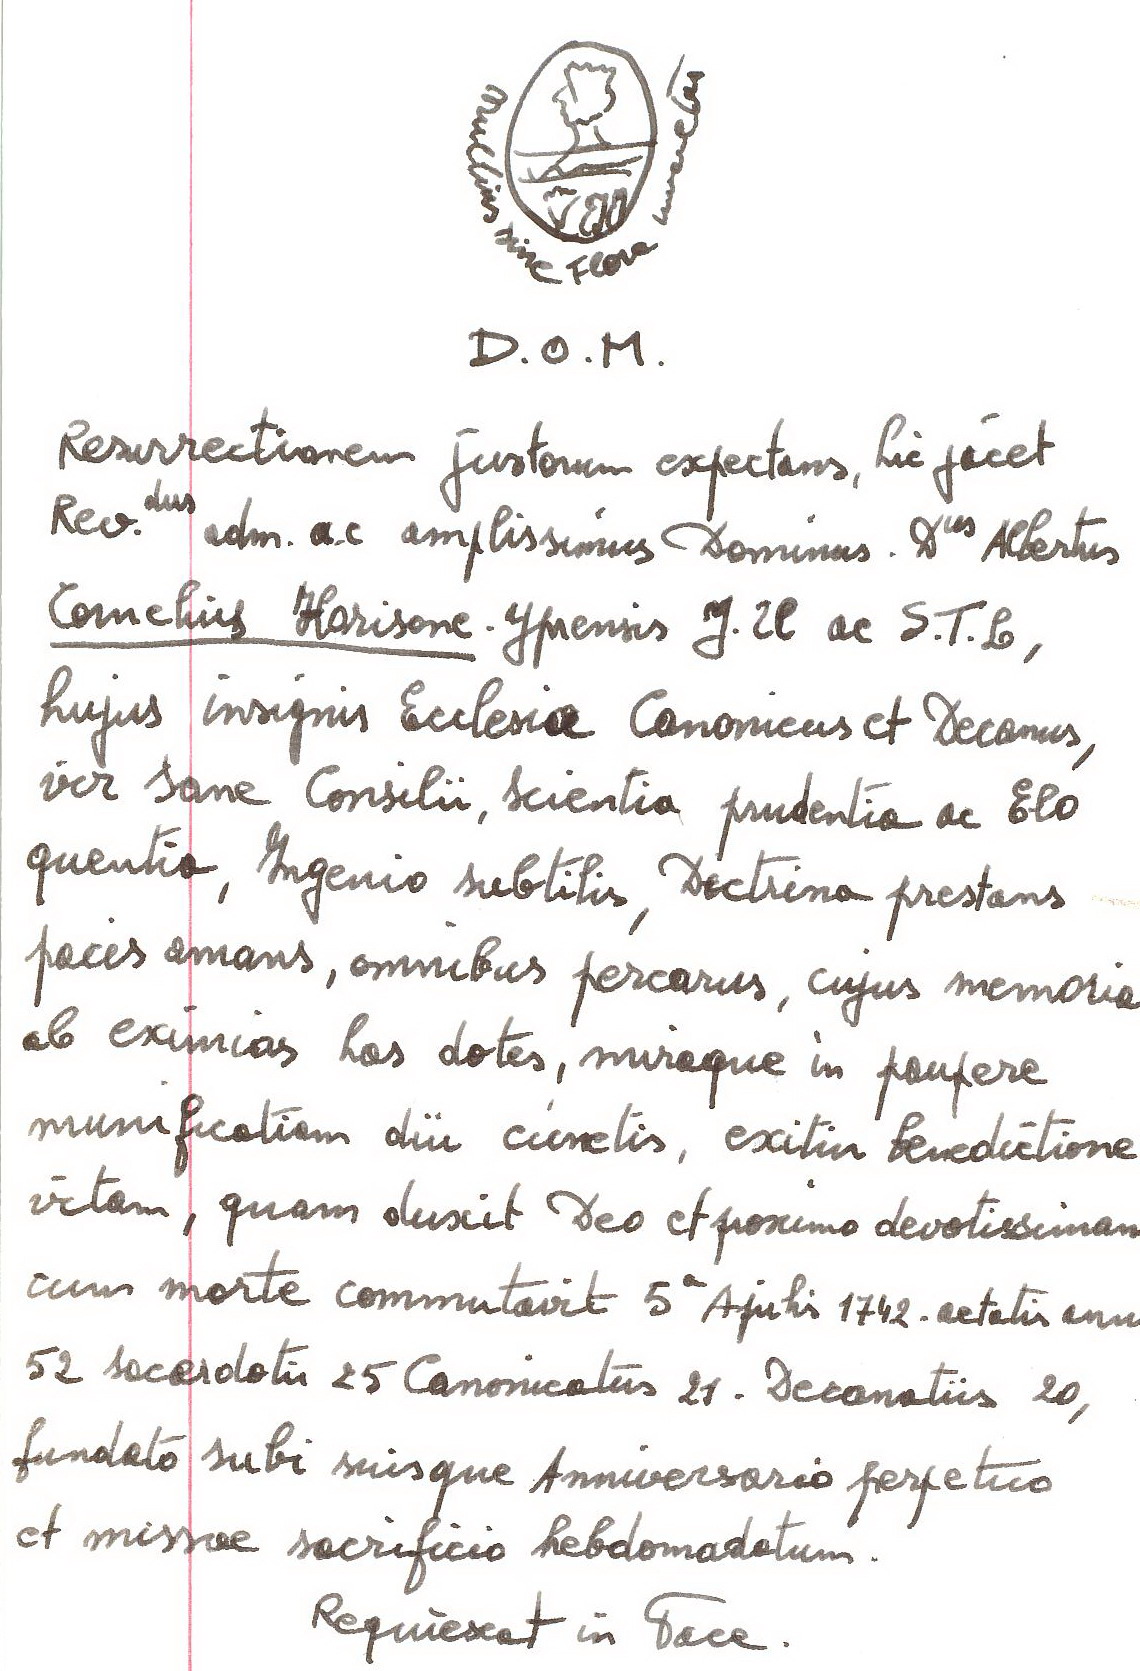 sine Flora
D.O.M.
Resurrectionem justorum expectans, hic jacet
Rev.dus adm. ac amplissimus Dominus. Dnus Albertus
Cornelius Harisone. Yprensis J.U ac S.T.L,
hujus insignis Ecclesiæ Canonicus et Decanus,
vir sane Consilii, scientia prudentia ac Elo
quentia, Ingenio subtilis, Doctrina prestans
pacis amans, omnibus percarus, cujus memoria
ob eximias has dotes, miraque in paupere
munificatiam diu cunctis, exitiu benedictione
vitam, quam duxit Deo et proximo devotissimam
cum morte commutavit 5a Aprilis 1742. aetatis annu
52 sacerdotii 25 Canonicatus 21. Decanatus 20,
fundato subi suisque Anniversario perpetuo
et missae sacrificio hebdomadatum.
Requiescat in Pace.